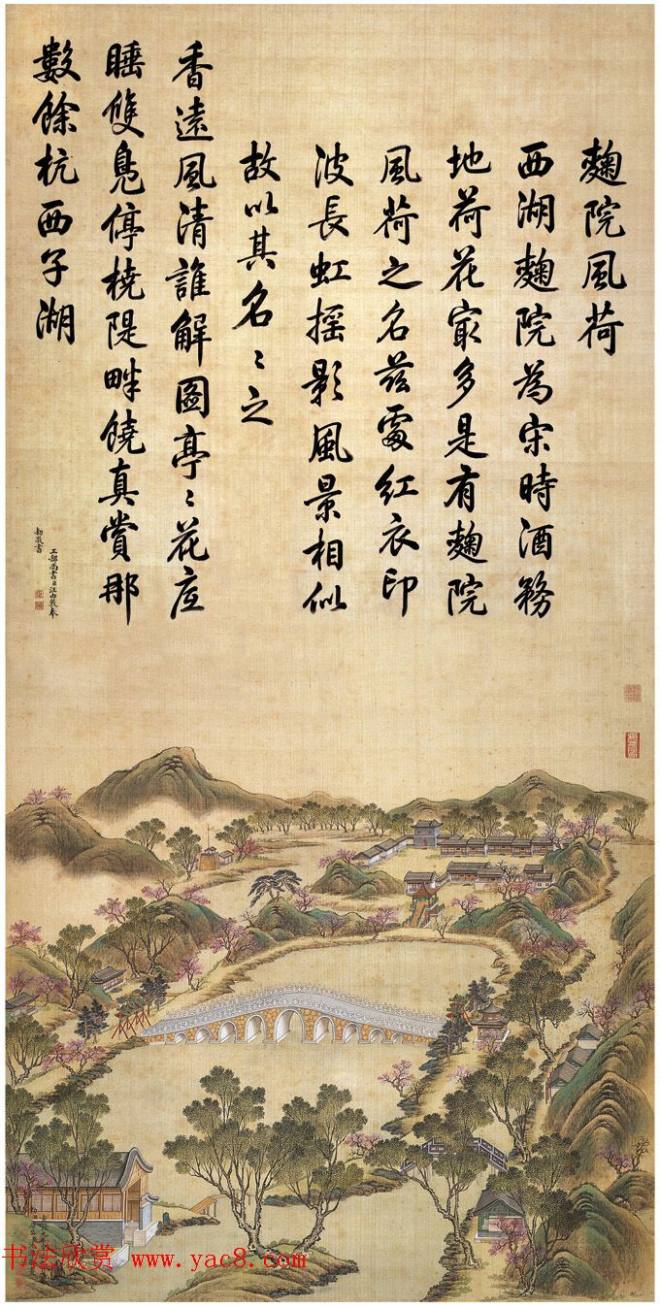 麴院風荷
西湖麴院為宋時酒務
地荷花冣多是有麴院
風荷之名茲處紅衣印
波長虹搖影風景相似
故以其名〻之
香遠風清誰解圖亭〻花底
睡雙鳧停橈隄畔饒真賞那
數餘杭西子湖
工部尚書臣汪由敦奉
勅敬書
书法欣赏 www.yac8.com